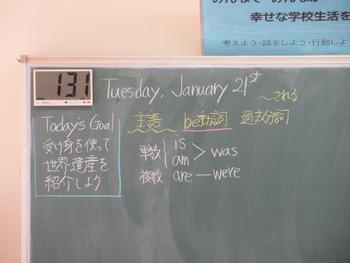 幸せな学校生活を
考えよう・話をしよう・行動しよ
131
Tuesday, January 21st
～される
Today's Goal
受け身を使って
世界遺産を
紹介しよう
主語 be動詞 過去分詞
単数 { is
am > was
複数 are — were